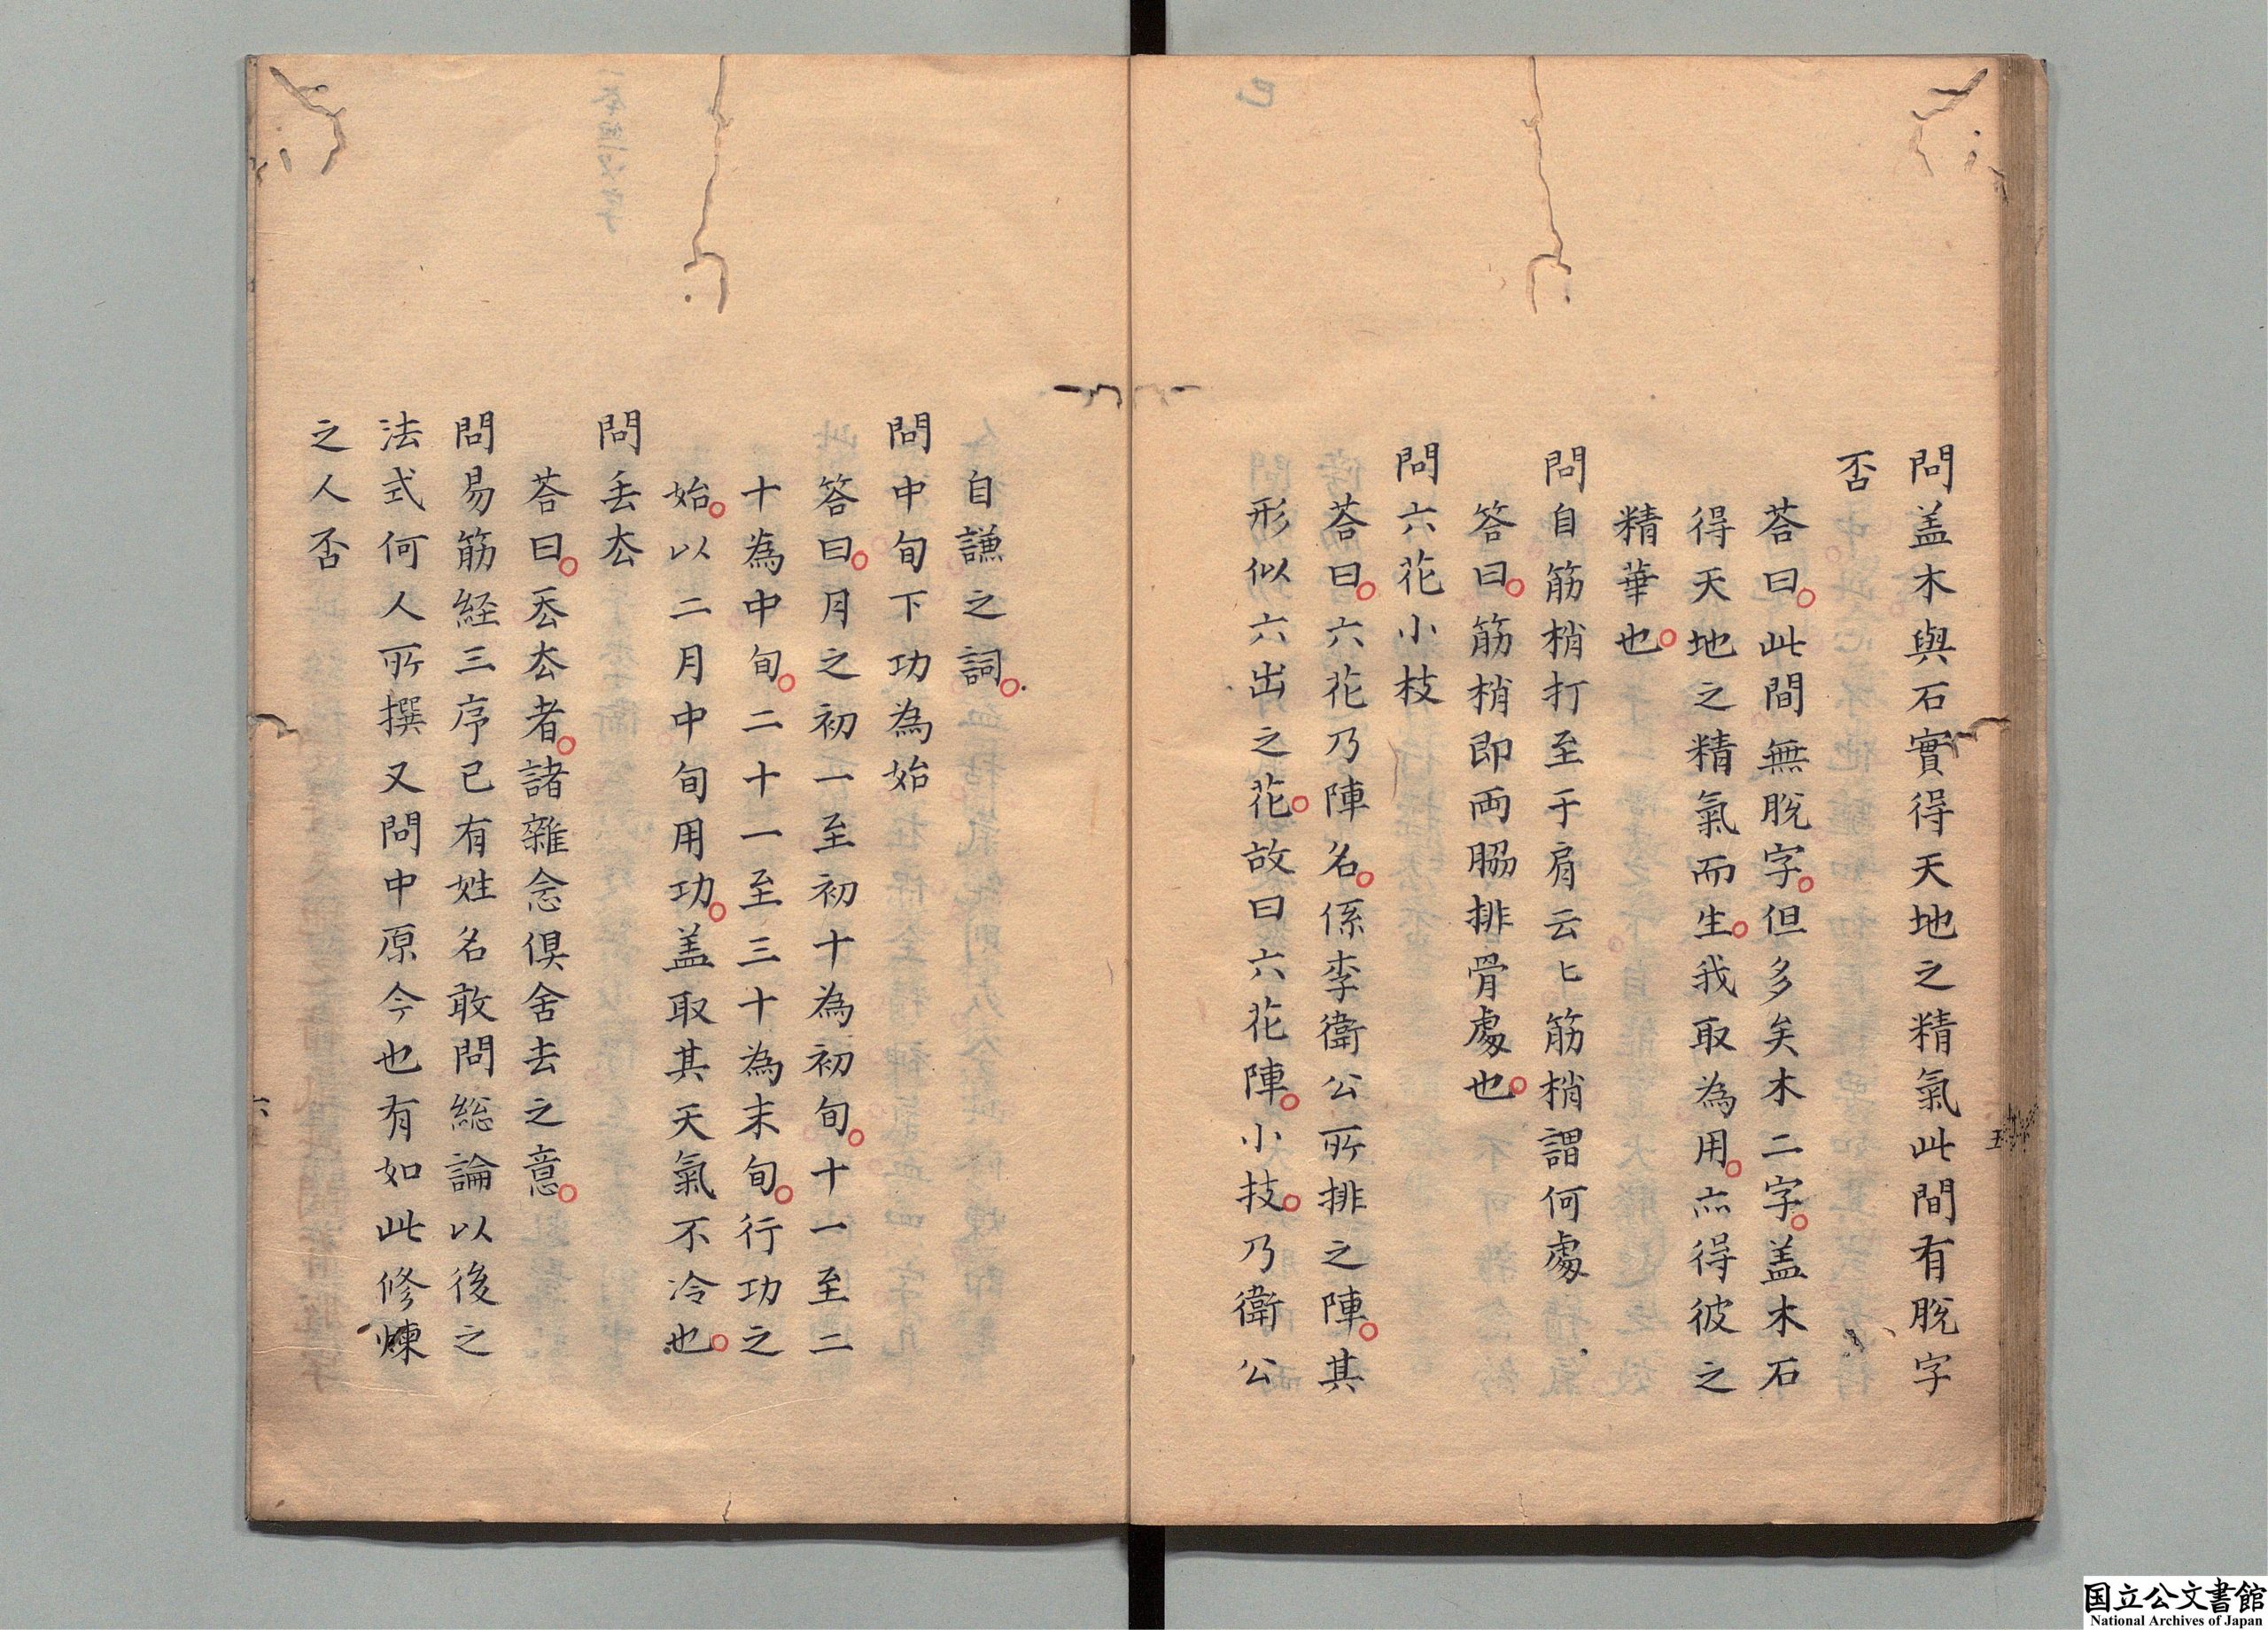 問盖木與石實得天地之精氣此間有脫字
否
荅曰。此間無脫字。但多矣木二字。盖木石
得天地之精氣而生。我取為用。亦得彼之
精華也。
問自筋梢打至于肩云〻筋梢謂何處
答曰。筋梢即両脇排骨處也。
問六花小枝
荅曰。六花乃陣名。係李衛公所排之陣。其
形似六出之花。故曰六花陣。小技。乃衛公
五
自謙之詞。
問中旬下功為始
答曰。月之初一至初十為初旬。十一至二
十為中旬。二十一至三十為末旬。行功之
始。以二月中旬用功。盖取其天氣不冷也。
問丢厺
荅曰。丟厺者。諸雜念俱舍去之意。
問易筋経三序已有姓名敢問総論以後之
法式何人所撰又問中原今也有如此修煉
之人否
六
国立公文書館
National Archives of Japan